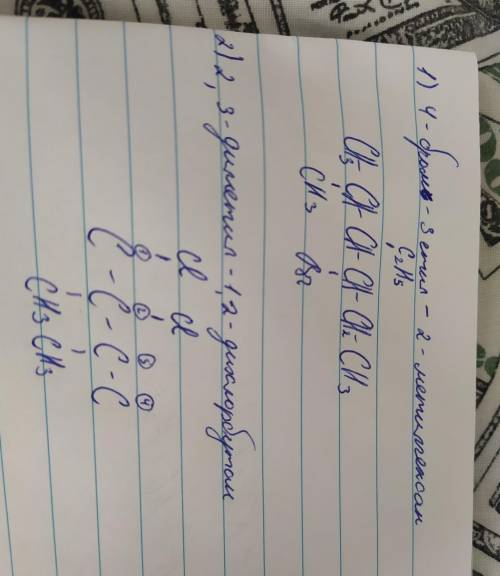 1) 4-бром-3 этил-2-метилгексан
C2H5
CH3-CH-CH-CH-CH2-CH3
CH3 Br
2) 2,3-диметил-1,2-дихлорбутан
Cl Cl
1 2 3 4
C-C-C-C
CH3 CH3